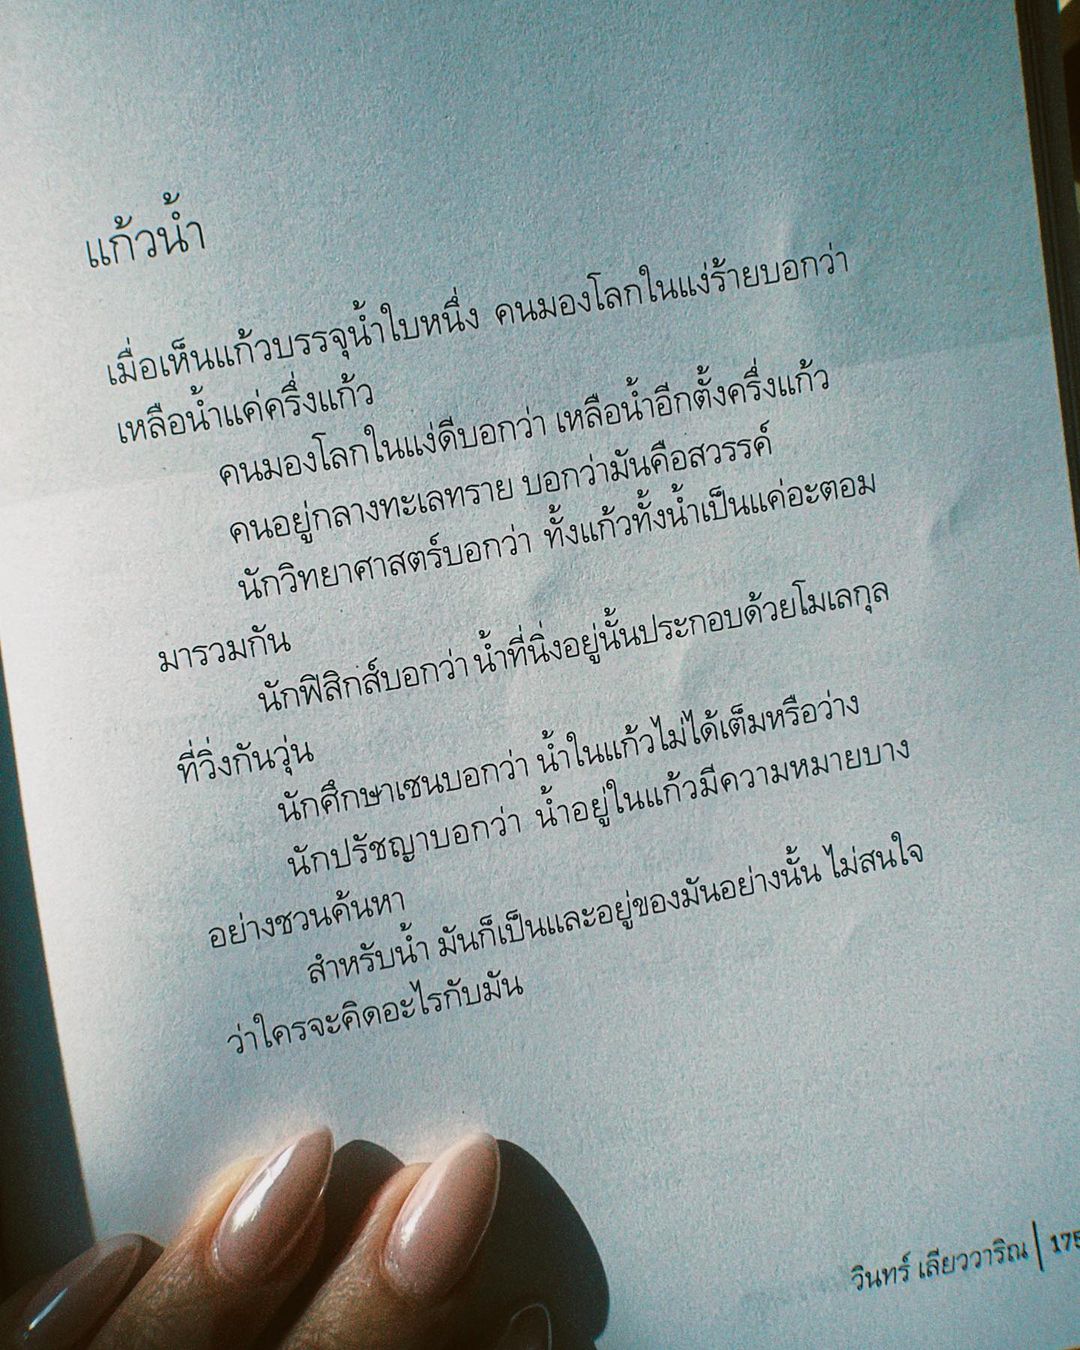 แก้วน้ำ
เมื่อเห็นแก้วบรรจุน้ำใบหนึ่ง คนมองโลกในแง่ร้ายบอกว่า
เหลือน้ำแค่ครึ่งแก้ว
คนมองโลกในแง่ดีบอกว่า เหลือน้ำอีกตั้งครึ่งแก้ว
คนอยู่กลางทะเลทราย บอกว่ามันคือสวรรค์
นักวิทยาศาสตร์บอกว่า ทั้งแก้วทั้งน้ำเป็นแค่อะตอม
มารวมกัน
นักฟิสิกส์บอกว่า น้ำที่นิ่งอยู่นั้นประกอบด้วยโมเลกุล
ที่วิ่งกันวุ่น
นักศึกษาเซนบอกว่า น้ำในแก้วไม่ได้เต็มหรือว่าง
นักปรัชญาบอกว่า น้ำอยู่ในแก้วมีความหมายบาง
อย่างชวนค้นหา
สำหรับน้ำ มันก็เป็นและอยู่ของมันอย่างนั้น ไม่สนใจ
ว่าใครจะคิดอะไรกับมัน
วินทร์ เลียววาริณ | 175